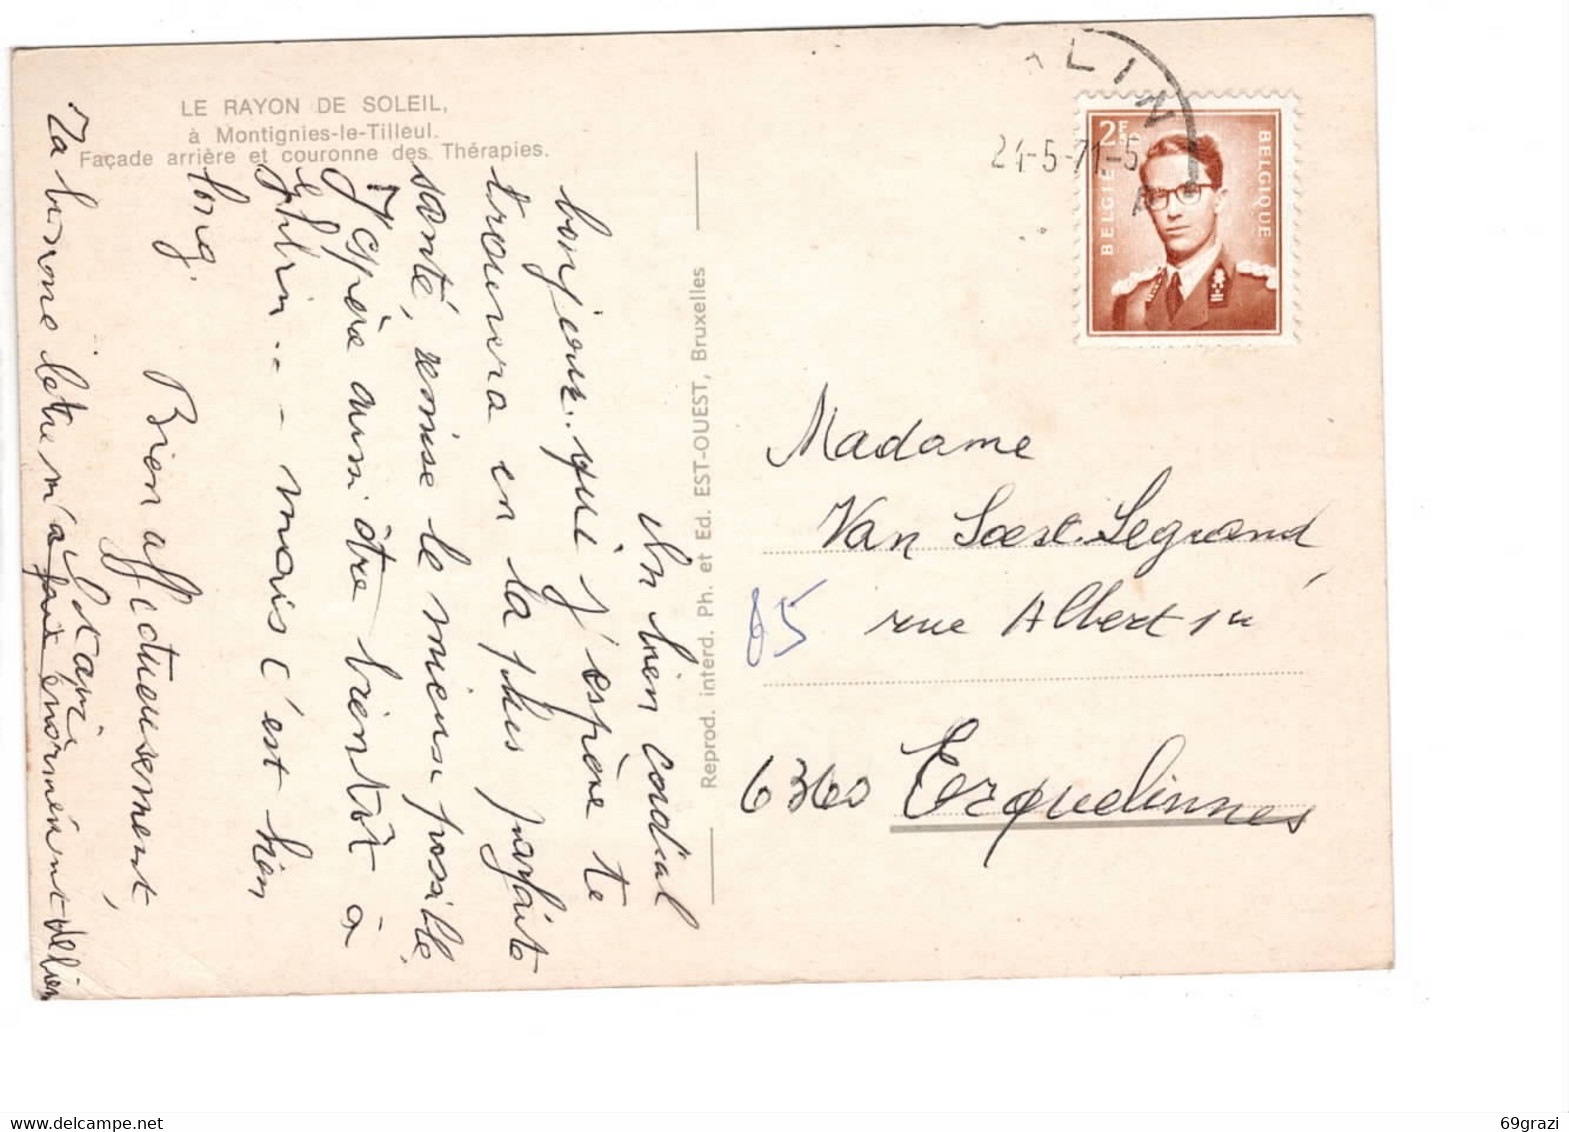 LE RAYON DE SOLEIL,
à Montignies-le-Tilleul.
Façade arrière et couronne des Thérapies.
Un bien cordial
bonjour.. qui j'espère te
trouvera en la plus parfaite
santé, remise le mieux possible,
J'espère aussi être bientôt à
Ghlin... - mais c'est bien
long.
Bien affectueusement,
Ta bonne lettre m'a fait énormément de bien
Reprod. interd. Ph. et Ed. EST-OUEST, Bruxelles
LIN
24-5-71-5
2F
BELGIE
BELGIQUE
Madame
Van Soest-Legrand
85 rue Albert 1er
6360 Erquelinnes
69grazi